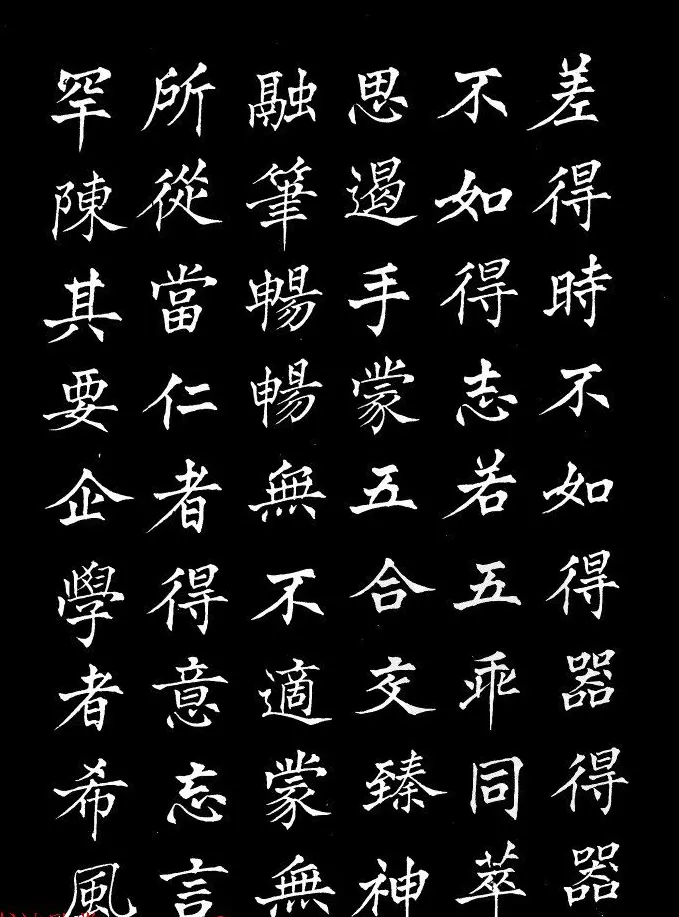 差得時不如得器得器
不如得志若五乖同萃
思遏手蒙五合交臻神
融筆暢暢無不適蒙無
所從當仁者得意忘言
罕陳其要企學者希風